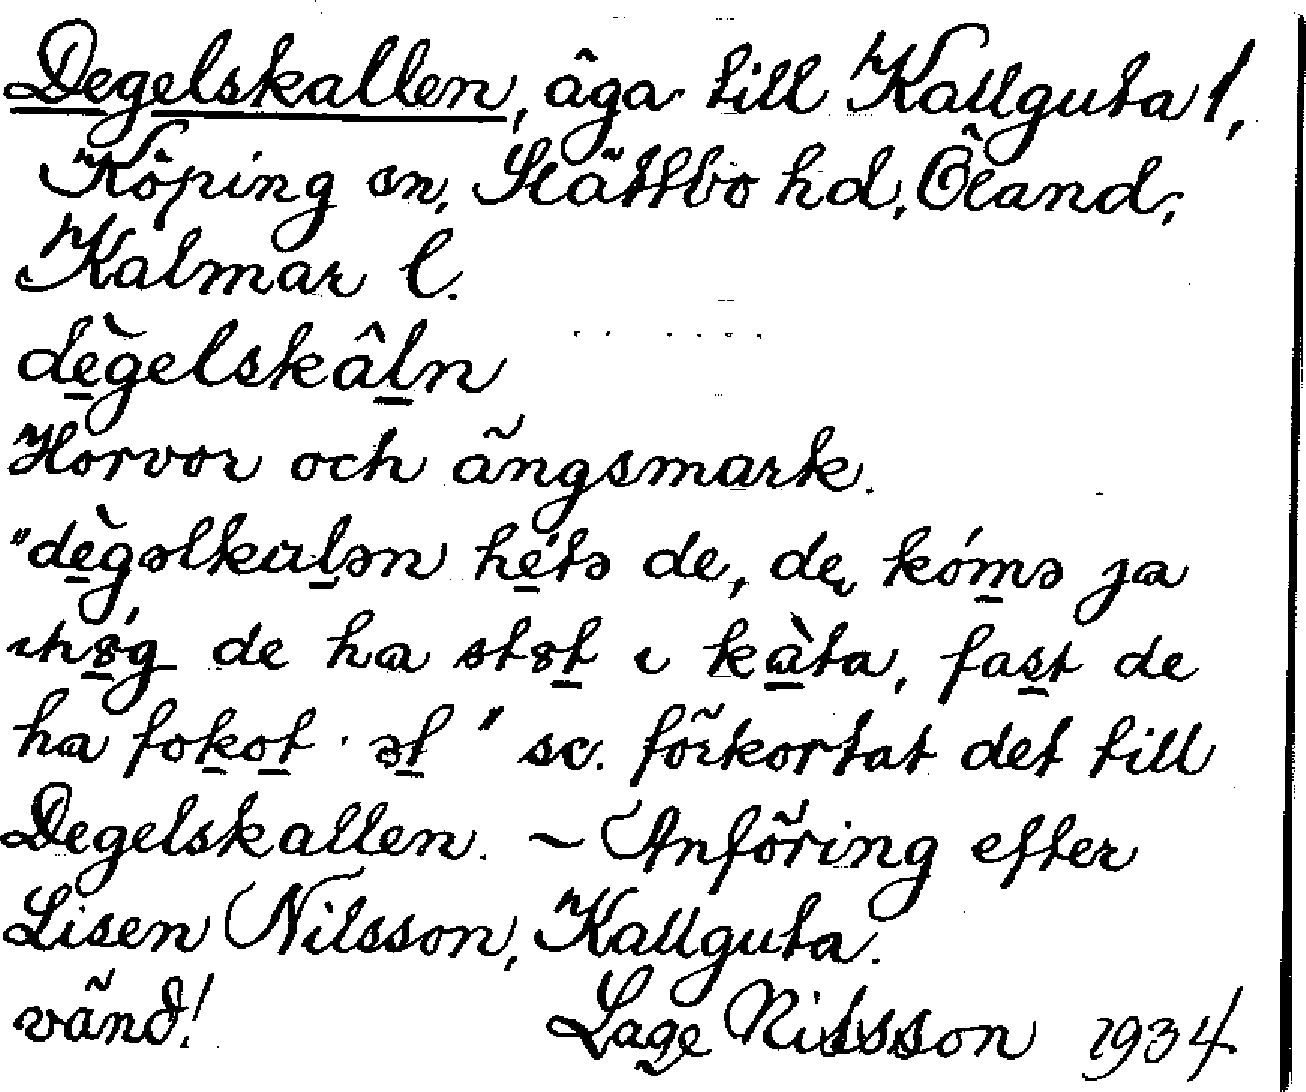 Degelskallen, äga till Kallguta 1,
Köping sn, Slättbo hd, Öland,
Kalmar l.
dè̱gelskâḻn
Horvor och ängsmark.
"dè̱gəlkaḻən hé̱tə de, dę kóm̱ə ja
ihǿ̱g de ha støṯ ı kà̱ta, fas̱t de
ha foḵoṯ · əṯ" sc. förkortat det till
Degelskallen. – Anföring efter
Lisen Nilsson, Kallguta.
vänd! Lage Nilsson 1934